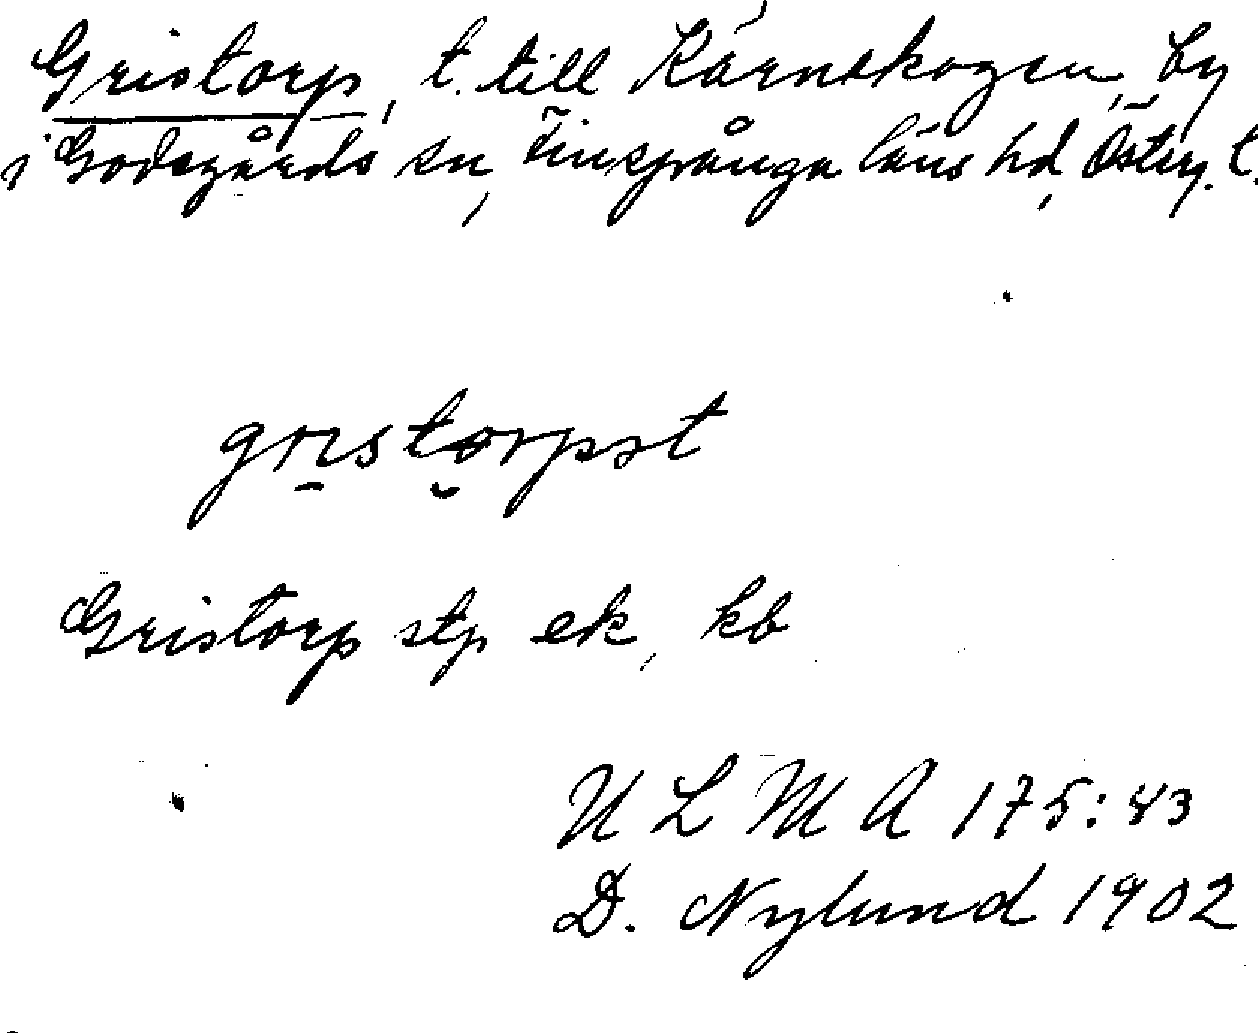 Gristorp, t. till Kärnskogen, by
i Godegårds sn, Finspånga läns hd, Österg. l.
grıstorpət
Gristorp stp ek, kb
ULMA 175:83
D. Nylund 1902